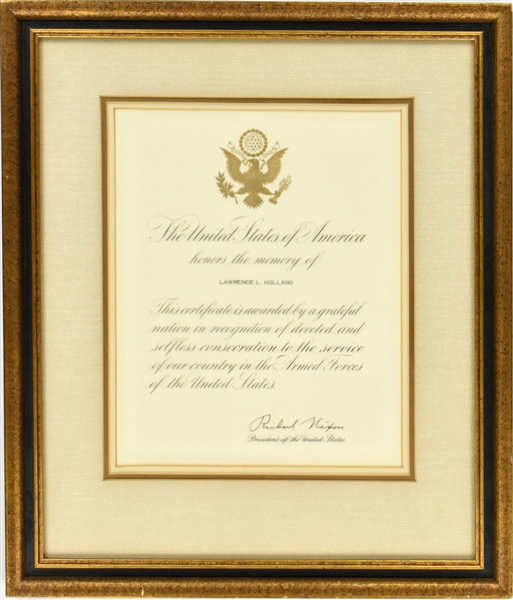 The United States of America
honors the memory of
LAWRENCE L. HOLLAND
This certificate is awarded by a grateful
nation in recognition of devoted and
selfless consecration to the service
of our country in the Armed Forces
of the United States.
Richard Nixon
President of the United States